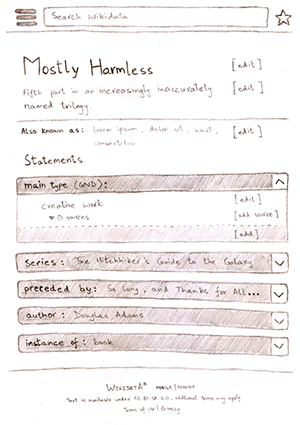 Search Wikidata
Mostly Harmless [edit]
Fifth part in an increasingly inaccurately [edit]
named trilogy.
Also known as: lorem ipsum, dolor sit, amet, [edit]
consectetur
Statements
main type (GND):
creative work [edit]
▾ 0 sources [add source]
[add]
series: The Hitchhiker's Guide to the Galaxy
preceded by: So Long and Thanks for All...
author: Douglas Adams
instance of: book
WIKIDATA® MOBILE | DESKTOP
Text is available under CC BY-SA 3.0, additional terms may apply.
Terms of Use | Privacy